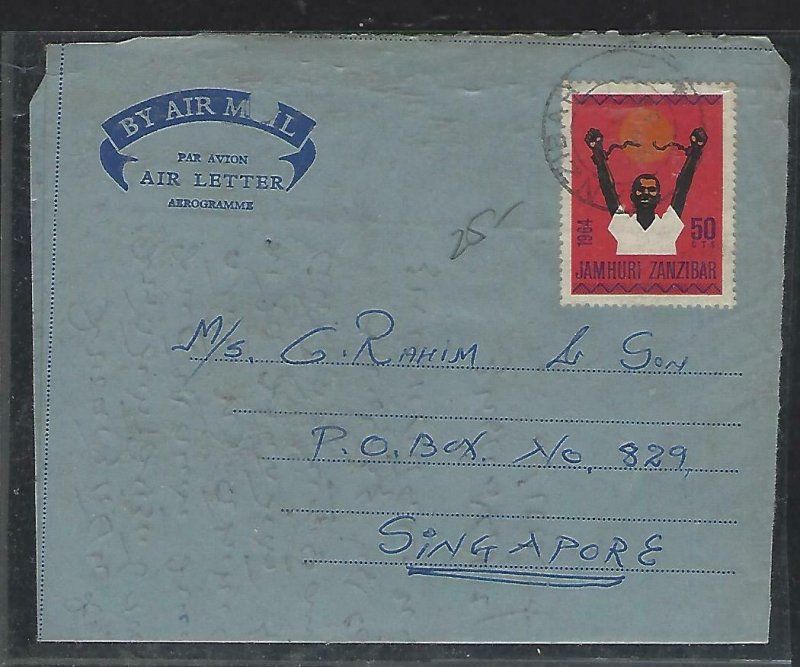 BY AIR MAIL
PAR AVION
AIR LETTER
AEROGRAMME
25-
1964
50
CTS
JAMHURI ZANZIBAR
M/s. G. RAHIM & SON
P.O. BOX. No, 829,
SINGAPORE